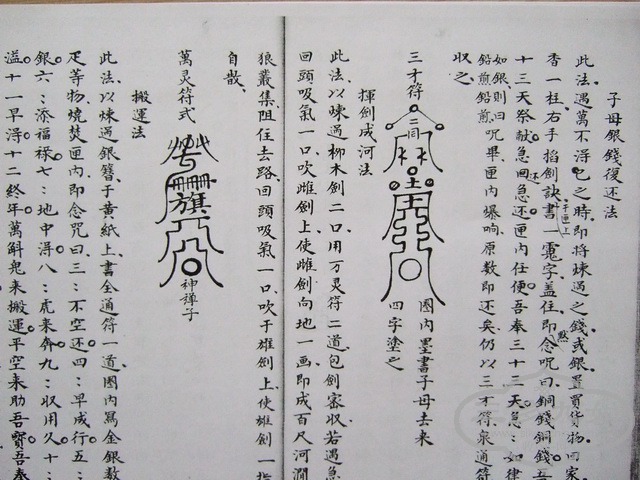 子母銀錢復还法
此法遇萬不得已之時即将煉過之錢或銀置買貨物回家
香一柱右手掐劍訣書一霓字盖住即念咒曰銅錢銅錢吾
于匣上
默
十三天祭献急回急还匣内任使吾奉三十三天急〻如律
还
如銀則曰鉛煎鉛煎咒畢匣内爆响原数即还矣仍以三才符泉通符
収之
三才符
二同
土
圈内墨書子母去来
四字塗之
揮劍成河法
此法以煉過柳木劍二口用万灵符二道包劍密収若遇急
回頭吸氣一口吹雌劍上使雌劍向地一画即成百尺河澗
狼叢集阻住去路回頭吸氣一口吹于雄劍上使雄劍一指
自散
萬灵符式
旗
神禅子
搬運法
此法以煉過銀簪子黄紙上書全通符一道圈内寫金銀数
疋等物燒焚匣内即念咒曰三〻不空还四〻早成行五〻
銀六〻添福禄七〻地中得八〻虎来奔九〻収用久十〻
溢十一早得十二終年萬斛鬼来搬運平空来助吾寳吾奉